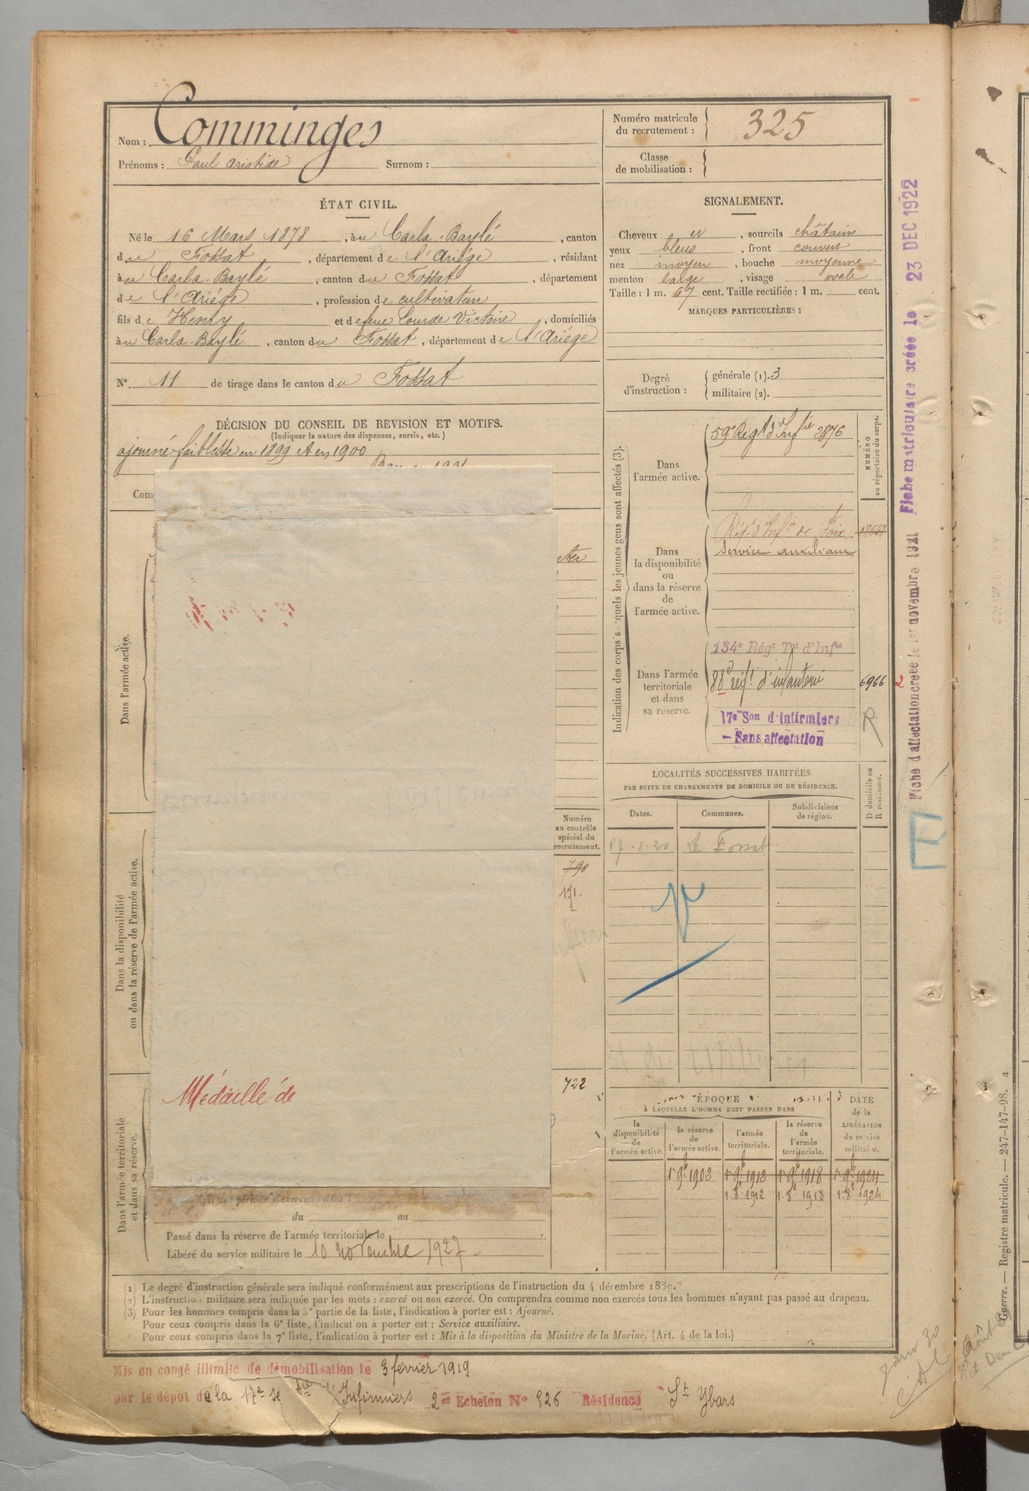 Nom : Comminges
Prénoms : Paul Aristide Surnom :
Numéro matricule du recrutement : 325
Classe de mobilisation :
ÉTAT CIVIL.
Né le 16 Mars 1878, à u Carla-Baylé, canton
d u Fossat, département d e l'Ariége, résidant
à u Carla-Baylé, canton d u Fossat, département
d e l'Ariége, profession d e cultivateur
fils d e Henry et d e feue Lourde Victoire, domiciliés
à u Carla-Baylé, canton d u Fossat, département d e l'Ariége
N° 11 de tirage dans le canton d u Fossat
SIGNALEMENT.
Cheveux et, sourcils châtains
yeux bleus, front couvert
nez moyen, bouche moyenne
menton large, visage ovale
Taille : 1 m. 67 cent. Taille rectifiée : 1 m. cent.
MARQUES PARTICULIÈRES :
Degré d'instruction : générale (1). 3
militaire (2).
DÉCISION DU CONSEIL DE REVISION ET MOTIFS.
(Indiquer la nature des dispenses, sursis, etc.)
ajourné faiblesse en 1899 et en 1900
Com
Dans l'armée active.
Dans la disponibilité ou dans la réserve de l'armée active.
Dans l'armée territoriale et dans sa réserve.
Numéro au contrôle spécial du recrutement.
790
171
722
Médaillé de
du au
Passé dans la réserve de l'armée territoriale le
Libéré du service militaire le 10 novembre 1927
Indication des corps auxquels les jeunes gens sont affectés (3).
NUMÉRO au répertoire du corps.
Dans l'armée active.
59e Régt d'Infie 2876
Dans la disponibilité ou dans la réserve de l'armée active.
Régt d'Infie de Foix
Service auxiliaire
Dans l'armée territoriale et dans sa réserve.
134e Régt Tal d'Infie
88e régt d'infanterie 6966
17e Son d'Infirmiers
- Sans affectation
R
LOCALITÉS SUCCESSIVES HABITÉES
PAR SUITE DE CHANGEMENTS DE DOMICILE OU DE RÉSIDENCE.
Dates. Communes. Subdivisions de région. D domicile ou R résidence.
17-1-20 Le Fossat
ÉPOQUE
À LAQUELLE L'HOMME DOIT PASSER DANS
la disponibilité de l'armée active.
la réserve de l'armée active.
l'armée territoriale.
la réserve de l'armée territoriale.
DATE de la LIBÉRATION du service militaire.
1 9b 1902 1 9b 1912 1 9b 1918 1 9b 1924
1. 8b 1912 1. 8b 1918 1. 8b 1924
(1) Le degré d'instruction générale sera indiqué conformément aux prescriptions de l'instruction du 4 décembre 1889.
(2) L'instruction militaire sera indiquée par les mots : exercé ou non exercé. On comprendra comme non exercés tous les hommes n'ayant pas passé au drapeau.
(3) Pour les hommes compris dans la 5e partie de la liste, l'indication à porter est : Ajourné.
Pour ceux compris dans la 6e liste, l'indication à porter est : Service auxiliaire.
Pour ceux compris dans la 7e liste, l'indication à porter est : Mis à la disposition du Ministre de la Marine. (Art. 4 de la loi.)
Mis en congé illimité de démobilisation le 3 février 1919
par le dépôt de la 17e Infirmiers 2er Echelon N° 926 Résidence St Ybars
Fiche d'affectation créée le 1er novembre 1921 Fiche matriculaire créée le 23 DEC 1922
Guerre. — Registre matricule. — 247-147-98.